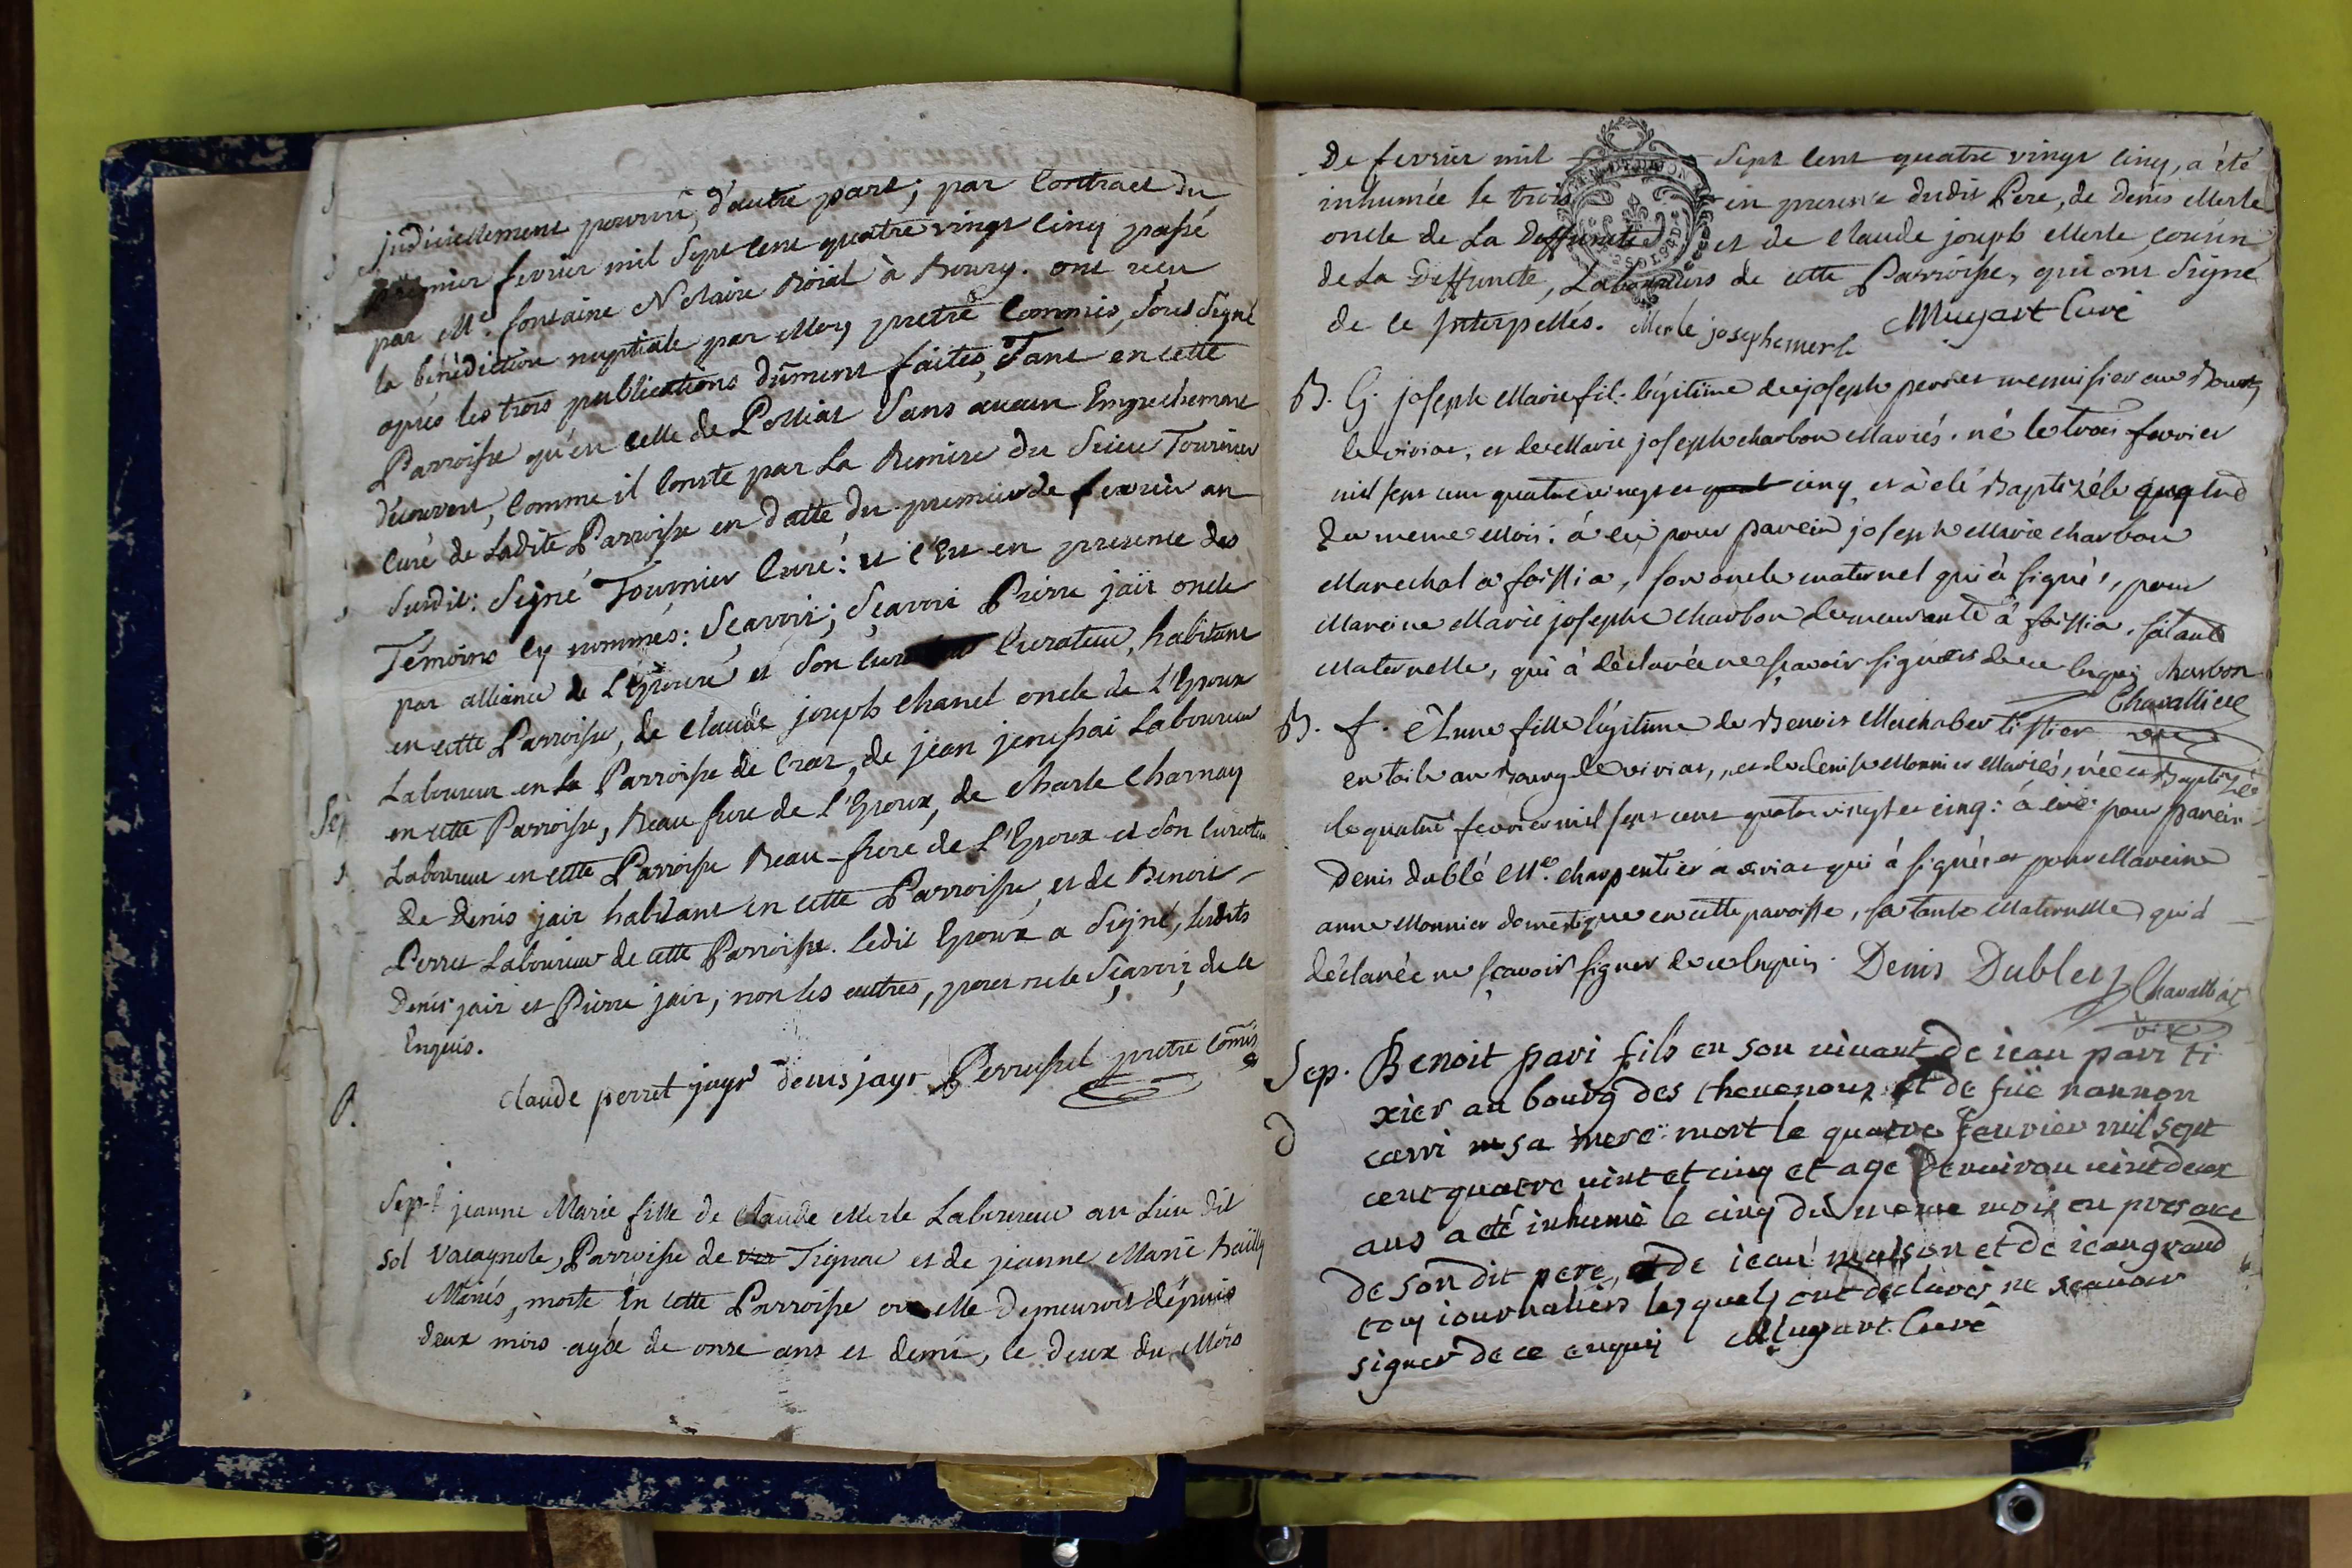 judiciellement pourvu, d'autre part; par Contract du
premier fevrier mil Sept Cent quatre vingt Cinq passé
par Me. fontaine Notaire Roial à Bourg. ont reçu
la bénédiction nuptiale par Moy pretre Commis, Sous Signé
aprés les trois publications düment faites, Tant en cette
Parroisse qu'en Celle de Polliat Sans aucun Empechement
découvert, Comme il Conste par La Remise du Sieur Tournier
Curé de Ladite Parroisse en datte du premier de fevrier an
Susdit: Signé Tournier Curé: et c'Est en presence des
Témoins Cy nommés: Sçavoir; Sçavoir Pierre jair oncle
par alliance de L'Epouse et Son Curateur, habitant
en cette Parroisse, de Claude joseph Chanel oncle de L'Epoux
Laboureur en la Parroisse de Cras, de jean Laboureur
en cette Parroisse, Beau frere de L'Epoux, de Charle Charnay
Laboureur en cette Parroisse Beau-frere de L'Epoux et Son Curateur
De Denis jair habitant en cette Parroisse, et de Benoit
Perret Laboureur de cette Parroisse. Ledit Epoux a Signé, lesdits
Denis jair et Pierre jair; non les autres, pour ne le Sçavoir, de ce
Enquis.
claude perret jayr denis jayr Perrussel pretre Comis
Sep.t jeanne Marie fille de Claude Merle Laboureur au Lieu dit
sol Vacagnole, Parroisse de Tignac et de jeanne Marie Bailly
Mariés, morte En cette Parroisse ou elle Demeuroit depuis
deux mois agée de onze ans et demi, le Deux du Mois
De fevrier mil Sept Cent quatre vingt Cinq, a été
inhumée le trois en presence dudit Pere, de Denis Merle
oncle de La Deffuncte et de Claude joseph Merle Cousin
de La Deffuncte, Laboureurs de cette Parroisse, qui ont Signé
de ce Interpellés. Merle joseph merle Mugart Curé
B. G. joseph Marie fil. légitime de joseph perret menuisier au Bourg
de viriat, et de Marie joseph charbon Mariés. né le trois fevrier
mil sept cent quatre vingt et cinq et à eté Baptisé le quatre
du meme Mois: à eü pour parein joseph Marie charbon
Marechal a foissia, son oncle maternel qui à signé, pour
Mareine Marie josephe charbon demeurante à foissia, sa tante
Maternelle, qui à déclarée ne sçavoir signer de ce enquis charbon
Chavallier
B. f. Anne fille légitime de Benoit tissier
en toile au Bourg de viriat, et de denise Monnier Mariés, née et Baptisée
le quatre fevrier mil sept cent quatre vingt et cinq: à eüe pour parein
Denis dublé Me. charpentier a viriat qui à signé, et pour Mareine
anne Monnier domestique en cette paroisse, sa tante Maternelle, qui à
déclarée ne sçavoir signer de ce enquis. Denis Dublet Chavallier
vic
Sep. Benoit pari fils en son vivant de iean pari ti
xier au bourg des et de füe nannon
d carri sa mere: mort le quatre fevrier mil sept
cent quatre vint et cinq et age denviron vint deux
ans a eté inhumé le cinq du meme mois en presance
de son dit pere, et de iean et de iean grand
tous iournaliers lesquels ont déclarés ne scauoir
signer de ce enquis Mugart Curé